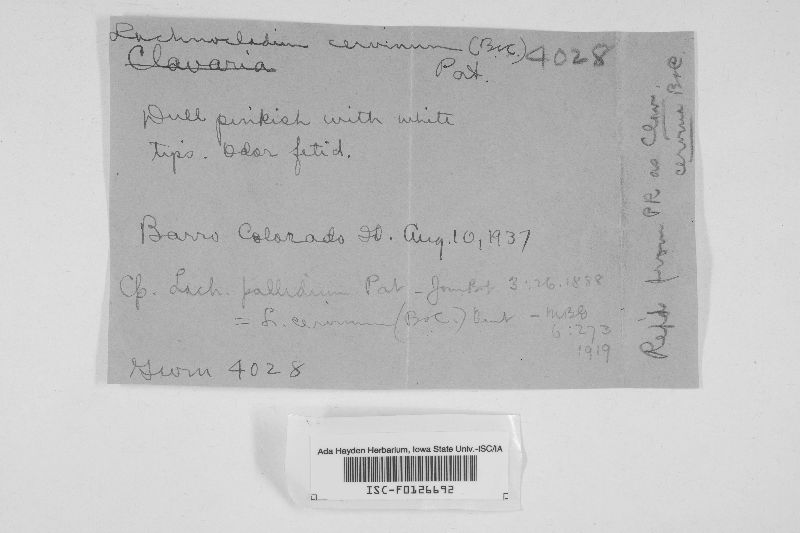 Lachnocladium cervinum (B&C) 4028
Clavaria Pat.
Dull pinkish with white
tips. Odor fetid.
Barro Colorado Id. Aug. 10, 1937
Cf. Lach. pallidum Pat - Jour Bot 3:26.1888
= L. cervinum (B&C.) Burt - MBG
6:273
1919
GWM 4028
Rep'td from PR as Clav.
cervina B&C.
Ada Hayden Herbarium, Iowa State Univ.-ISC/IA
ISC-F0126692